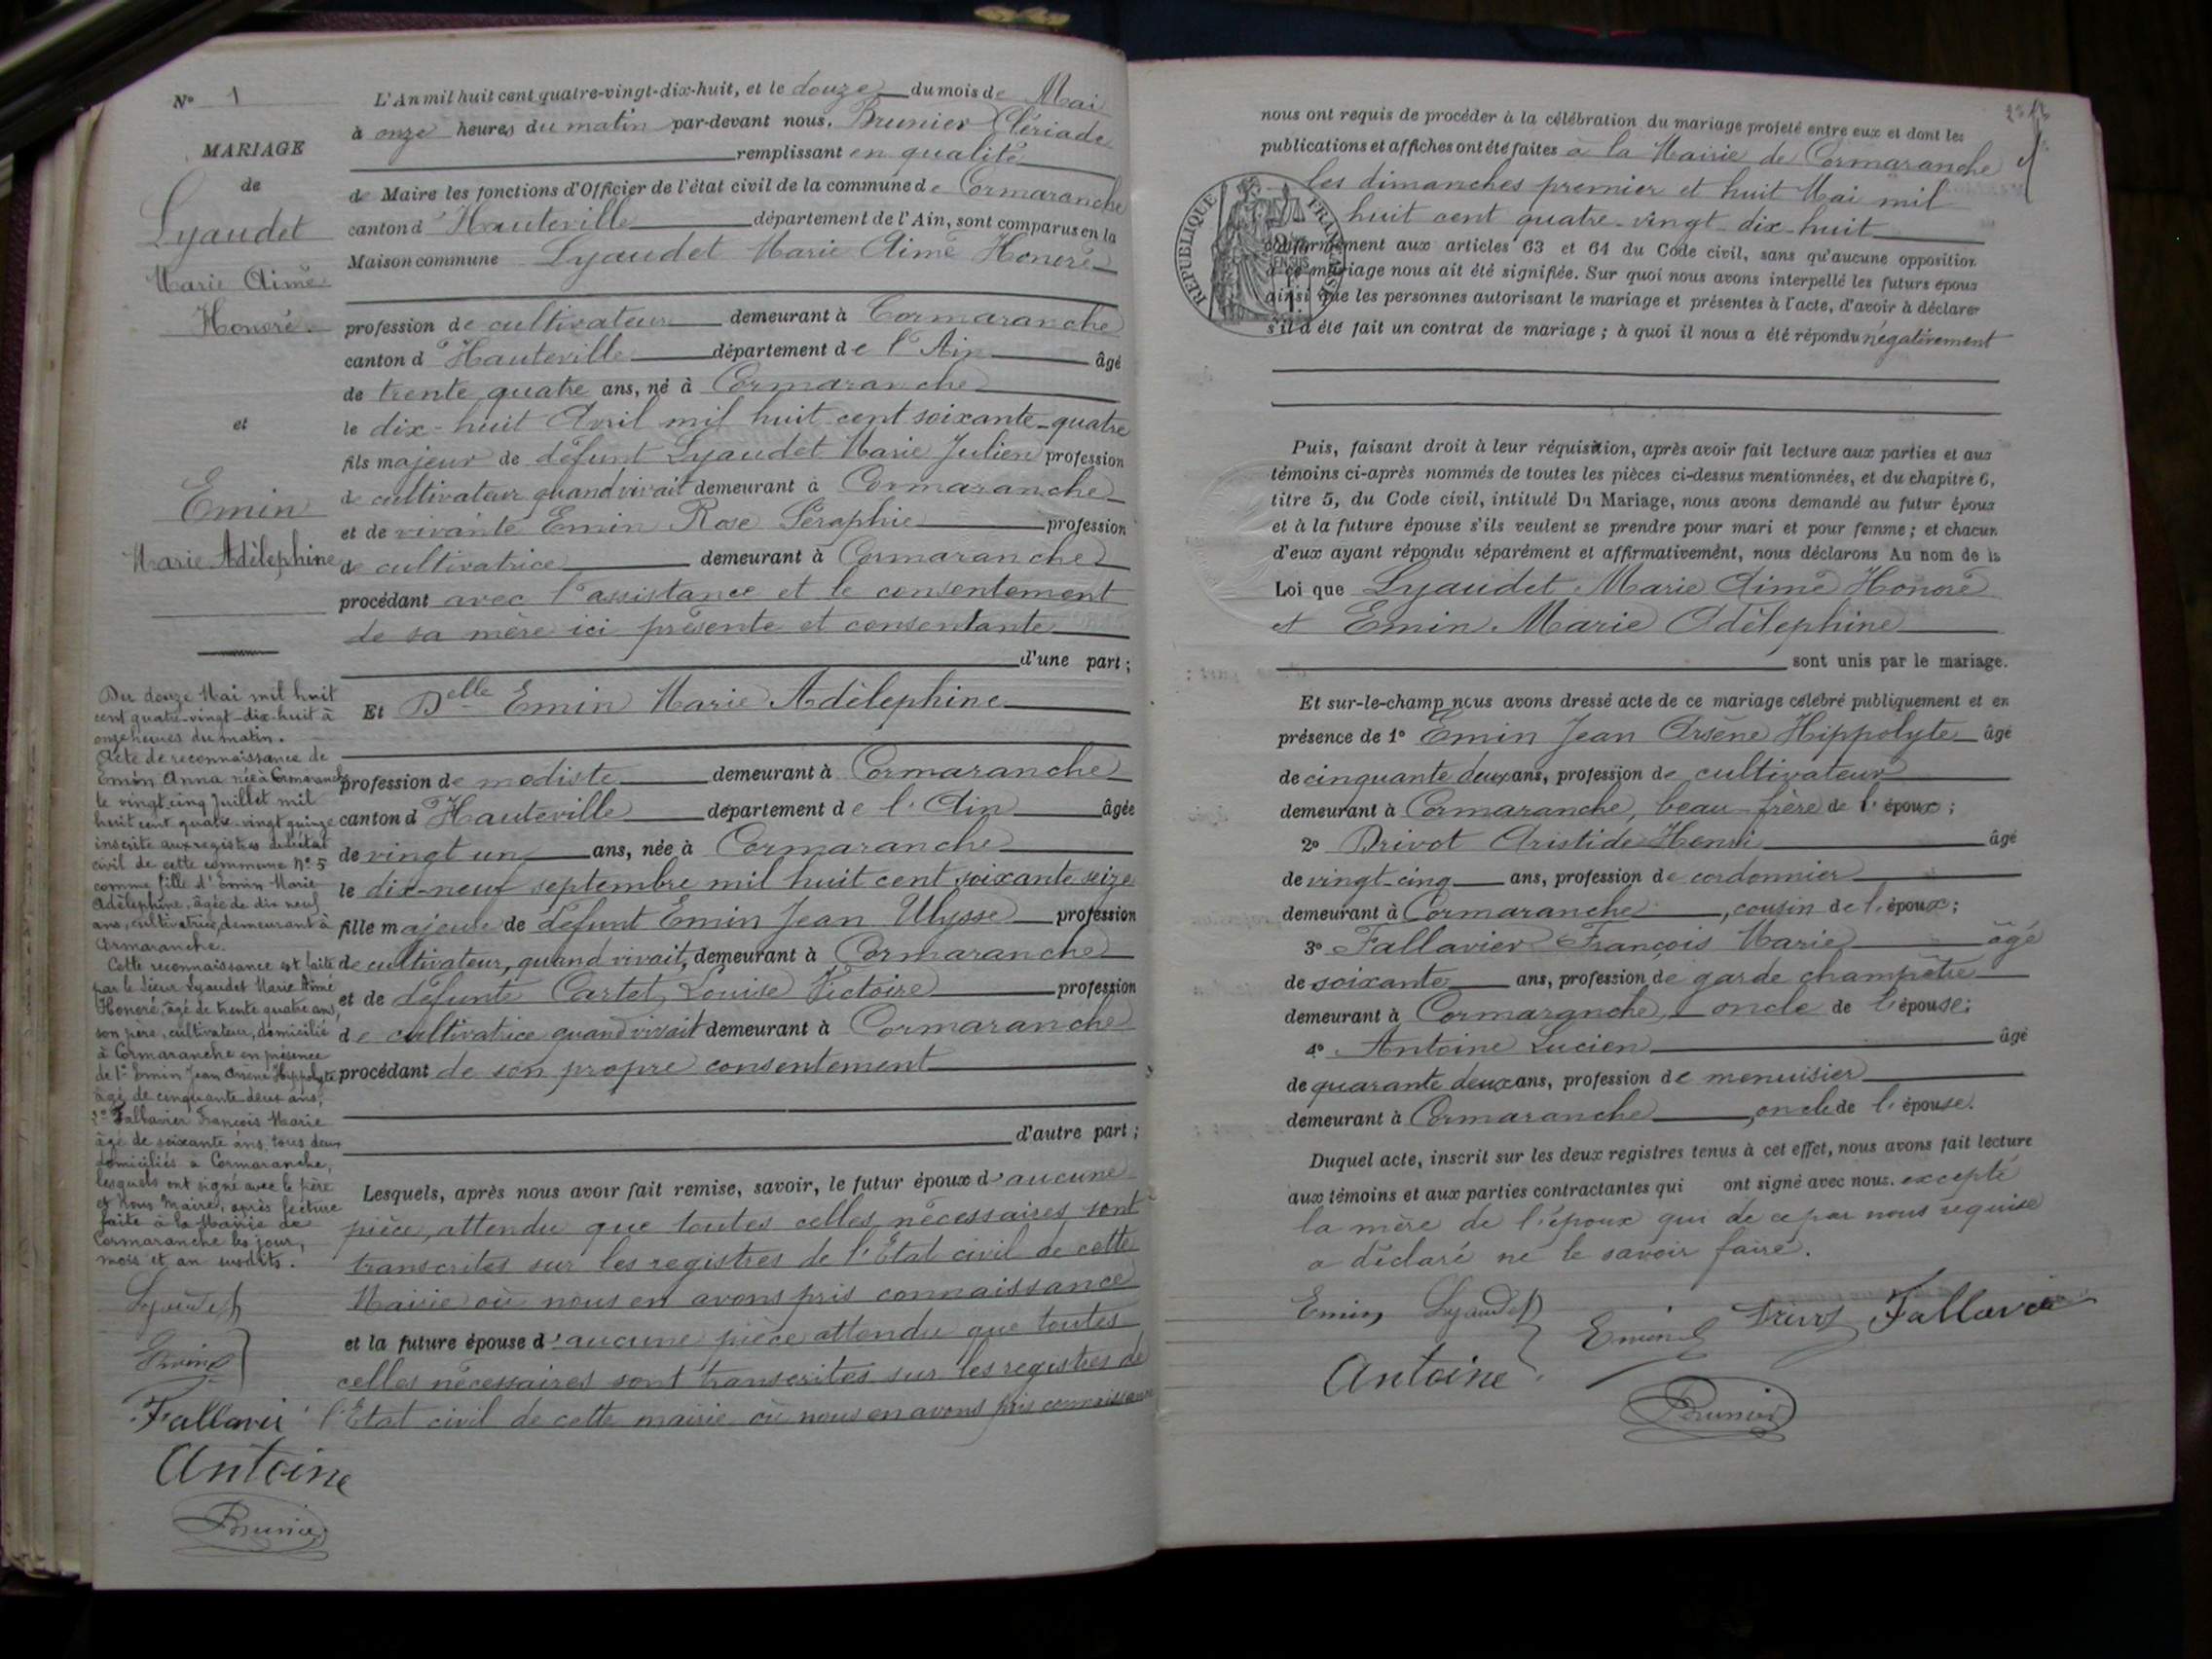 N° 1
MARIAGE
de
Lyaudet
Marie Aimé
Honoré
et
Emin
Marie Adèlephine
Du douze Mai mil huit
cent quatre-vingt-dix-huit à
onze heures du matin.
Acte de reconnaissance de
Emin Anna née à Cormaranche
le vingt-cinq Juillet mil
huit cent quatre-vingt quinze
inscrite aux registres de l'état
civil de cette commune N° 5
comme fille d'Emin Marie
Adèlephine, âgée de dix neuf
ans, cultivatrice, demeurant à
Cormaranche.
Cette reconnaissance est faite
par le Sieur Lyaudet Marie Aimé
Honoré, âgé de trente quatre ans,
son père, cultivateur, domicilié
à Cormaranche en présence
de 1° Emin Jean Arsène Hippolyte
âgé de cinquante-deux ans,
2° Fallavier François Marie
âgé de soixante ans, tous deux
domiciliés à Cormaranche,
lesquels ont signé avec le père
et Nous Maire, après lecture
faite à la Mairie de
Cormaranche les jour,
mois et an susdits.
Lyaudet
Emin
Fallavie
Antoine
Brunier
L'An mil huit cent quatre-vingt-dix-huit, et le douze du mois de Mai
à onze heures du matin par-devant nous, Brunier Cériade
remplissant en qualité
de Maire les fonctions d'Officier de l'état civil de la commune de Cormaranche
canton d'Hauteville département de l'Ain, sont comparus en la
Maison commune Lyaudet Marie Aimé Honoré
profession de cultivateur demeurant à Cormaranche
canton d'Hauteville département de l'Ain âgé
de trente quatre ans, né à Cormaranche
le dix-huit Avril mil huit cent soixante-quatre
fils majeur de défunt Lyaudet Marie Julien profession
de cultivateur quand vivait demeurant à Cormaranche
et de vivante Emin Rose Séraphie profession
de cultivatrice demeurant à Cormaranche
procédant avec l'assistance et le consentement
de sa mère ici présente et consentante
d'une part;
Et Delle Emin Marie Adèlephine
profession de modiste demeurant à Cormaranche
canton d'Hauteville département de l'Ain âgée
de vingt un ans, née à Cormaranche
le dix-neuf septembre mil huit cent soixante seize
fille majeure de défunt Emin Jean Ulysse profession
de cultivateur, quand vivait, demeurant à Cormaranche
et de défunte Cartet, Louise Victoire profession
de cultivatrice quand vivait demeurant à Cormaranche
procédant de son propre consentement
d'autre part;
Lesquels, après nous avoir fait remise, savoir, le futur époux d'aucune
pièce, attendu que toutes celles nécessaires sont
transcrites sur les registres de l'Etat civil de cette
Mairie où nous en avons pris connaissance
et la future épouse d'aucune pièce attendu que toutes
celles nécessaires sont transcrites sur les registres de
l'Etat civil de cette mairie où nous en avons pris connaissance
nous ont requis de procéder à la célébration du mariage projeté entre eux et dont les
publications et affiches ont été faites à la Mairie de Cormaranche
les dimanches premier et huit Mai mil
huit cent quatre-vingt-dix-huit
REPUBLIQUE FRANÇAISE
conformément aux articles 63 et 64 du Code civil, sans qu'aucune opposition
à ce mariage nous ait été signifiée. Sur quoi nous avons interpellé les futurs époux
ainsi que les personnes autorisant le mariage et présentes à l'acte, d'avoir à déclarer
s'il a été fait un contrat de mariage; à quoi il nous a été répondu négativement
Puis, faisant droit à leur réquisition, après avoir fait lecture aux parties et aux
témoins ci-après nommés de toutes les pièces ci-dessus mentionnées, et du chapitre 6,
titre 5, du Code civil, intitulé Du Mariage, nous avons demandé au futur époux
et à la future épouse s'ils veulent se prendre pour mari et pour femme; et chacun
d'eux ayant répondu séparément et affirmativement, nous déclarons Au nom de la
Loi que Lyaudet Marie Aimé Honoré
et Emin Marie Adèlephine
sont unis par le mariage.
Et sur-le-champ nous avons dressé acte de ce mariage célébré publiquement et en
présence de 1° Emin Jean Arsène Hippolyte âgé
de cinquante deux ans, profession de cultivateur
demeurant à Cormaranche, beau-frère de l'époux;
2° Drivot Aristide Henri âgé
de vingt-cinq ans, profession de cordonnier
demeurant à Cormaranche, cousin de l'époux;
3° Fallavier François Marie âgé
de soixante ans, profession de garde champêtre
demeurant à Cormaranche, oncle de l'épouse;
4° Antoine Lucien âgé
de quarante deux ans, profession de menuisier
demeurant à Cormaranche, oncle de l'épouse.
Duquel acte, inscrit sur les deux registres tenus à cet effet, nous avons fait lecture
aux témoins et aux parties contractantes qui ont signé avec nous. excepté
la mère de l'époux qui de ce par nous requise
a déclaré ne le savoir faire.
Emin Lyaudet Emin Drivot Fallavie
Antoine
Brunier